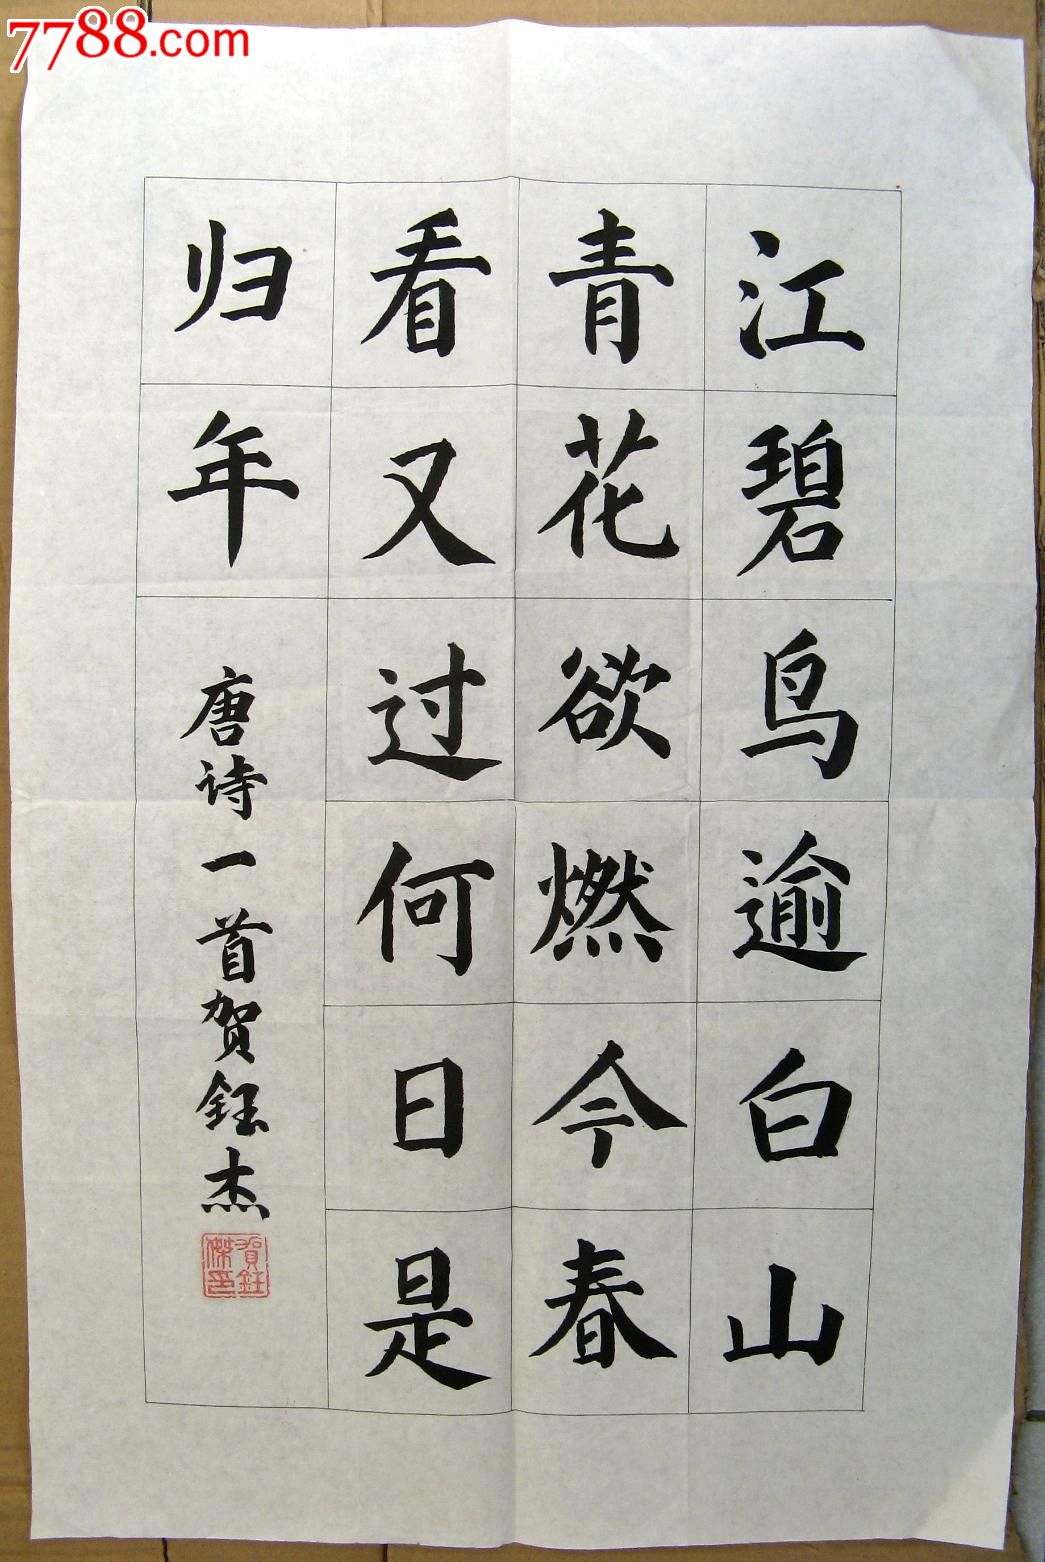 7788.com
江碧鸟逾白山
青花欲燃今春
看又过何日是
归年
唐诗一首贺鈺杰
贺鈺
傑印